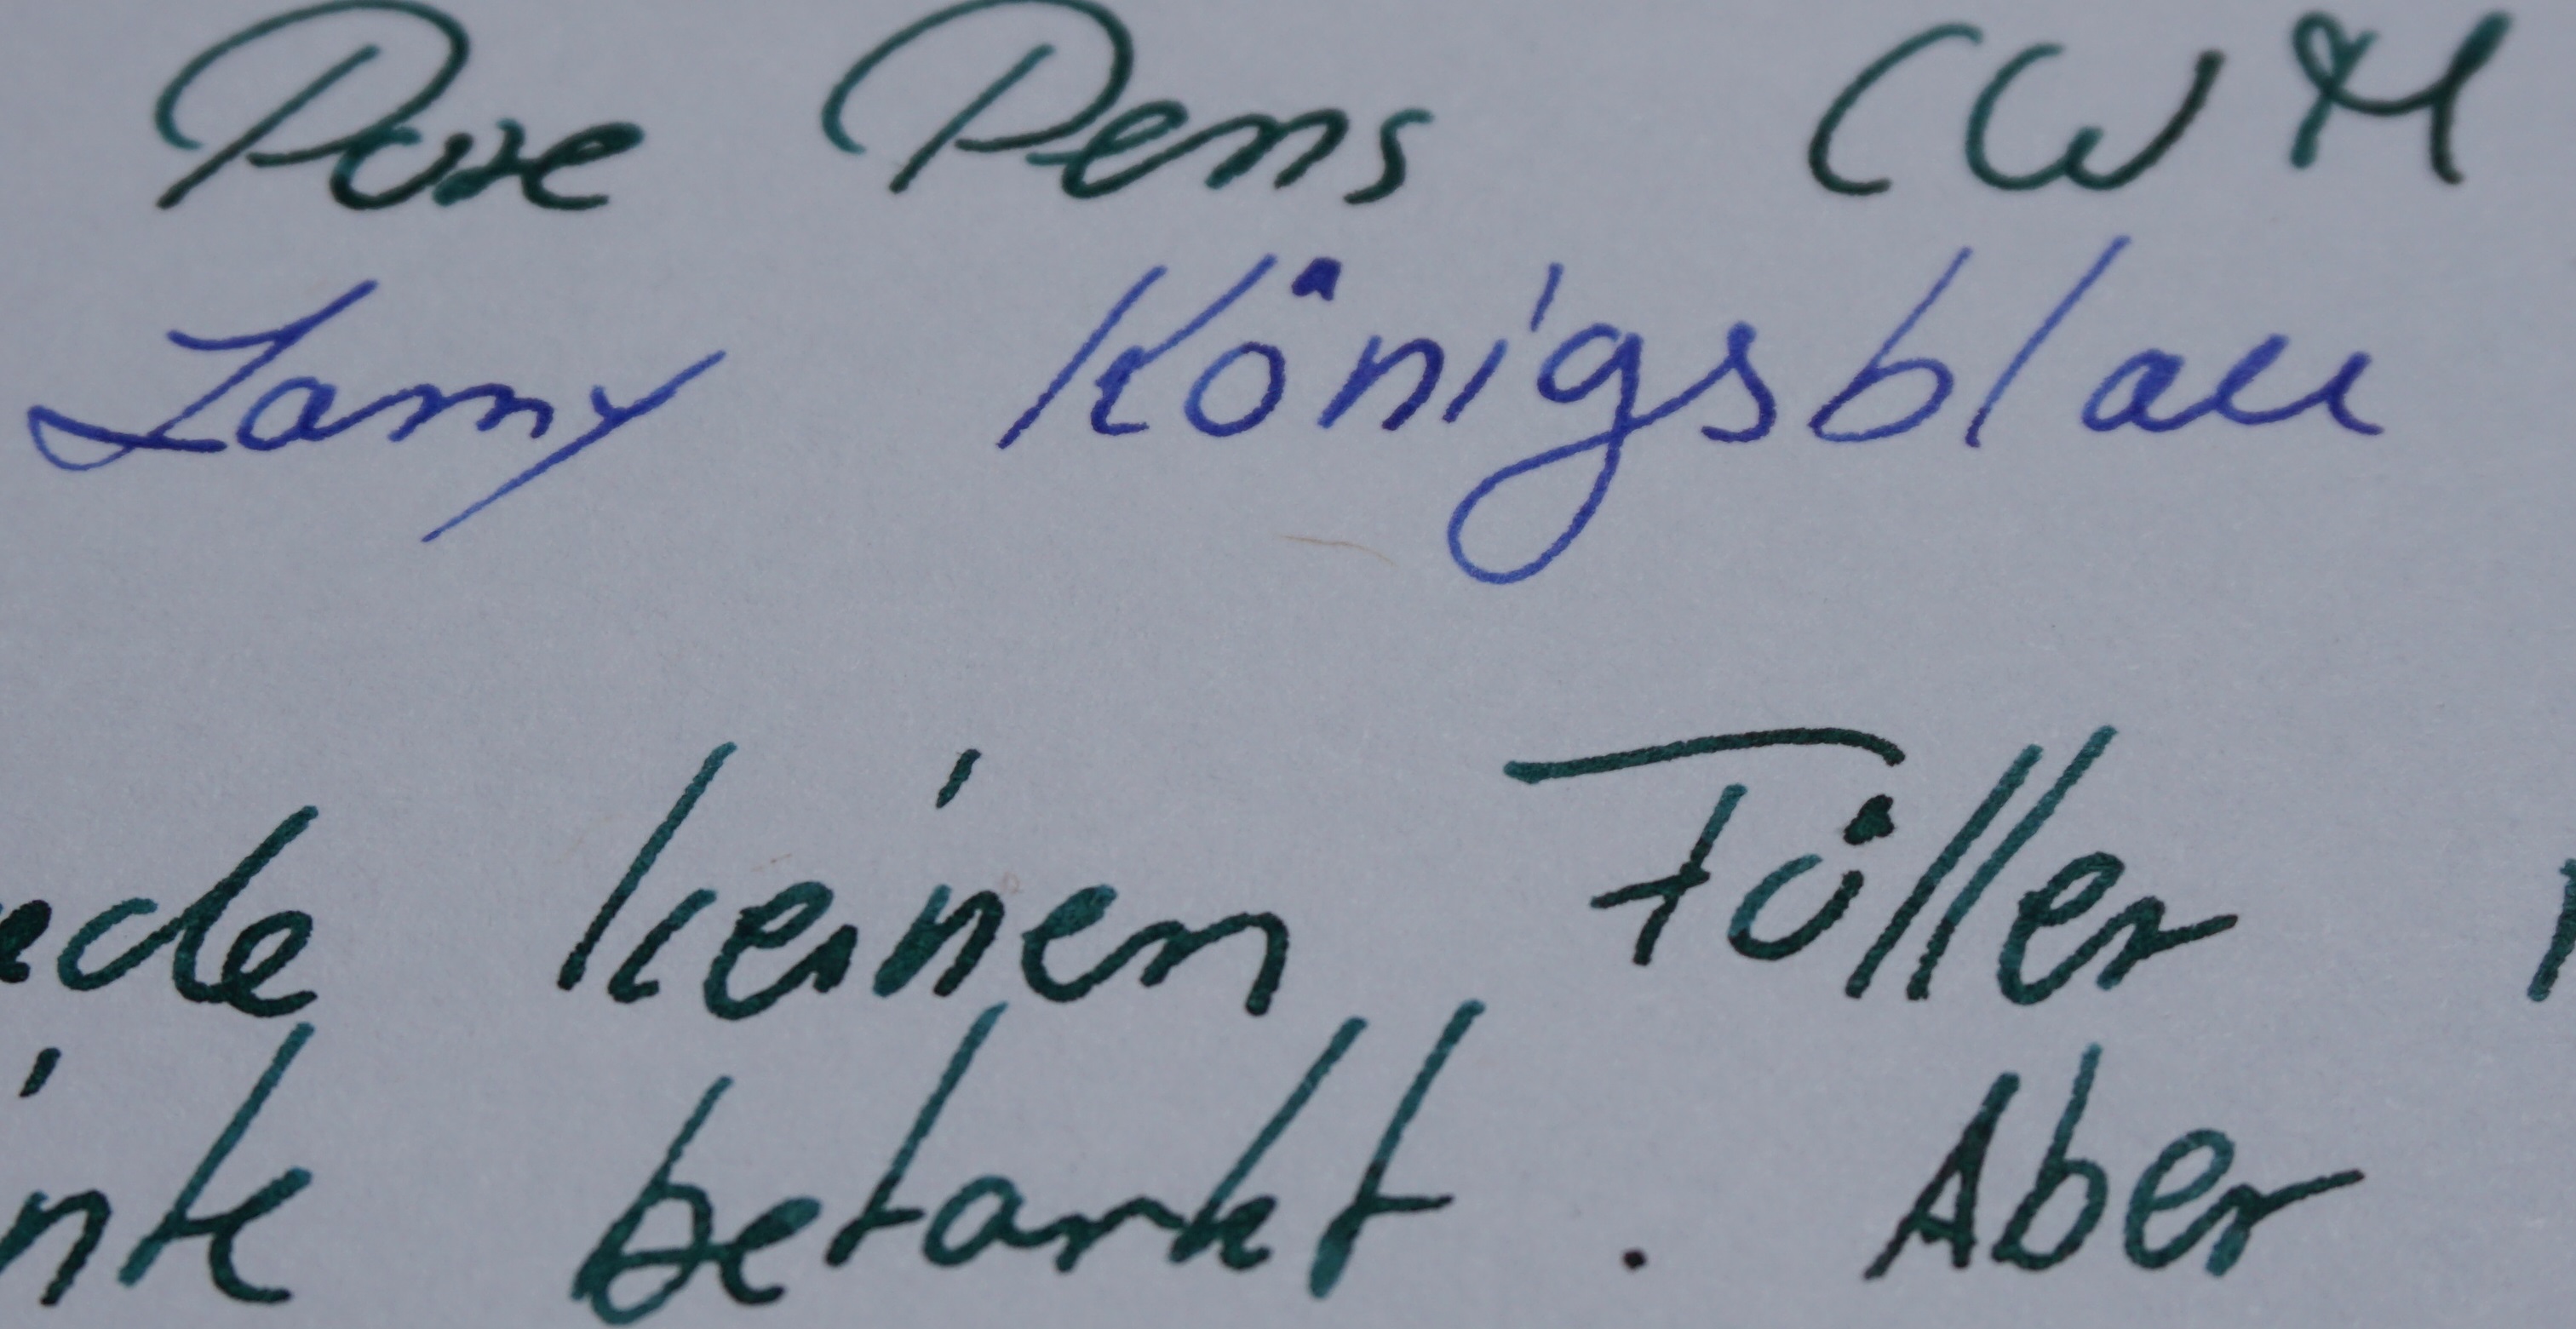 Pure Pens CWM
Lamy Königsblau
keinen Füller
betankt. Aber